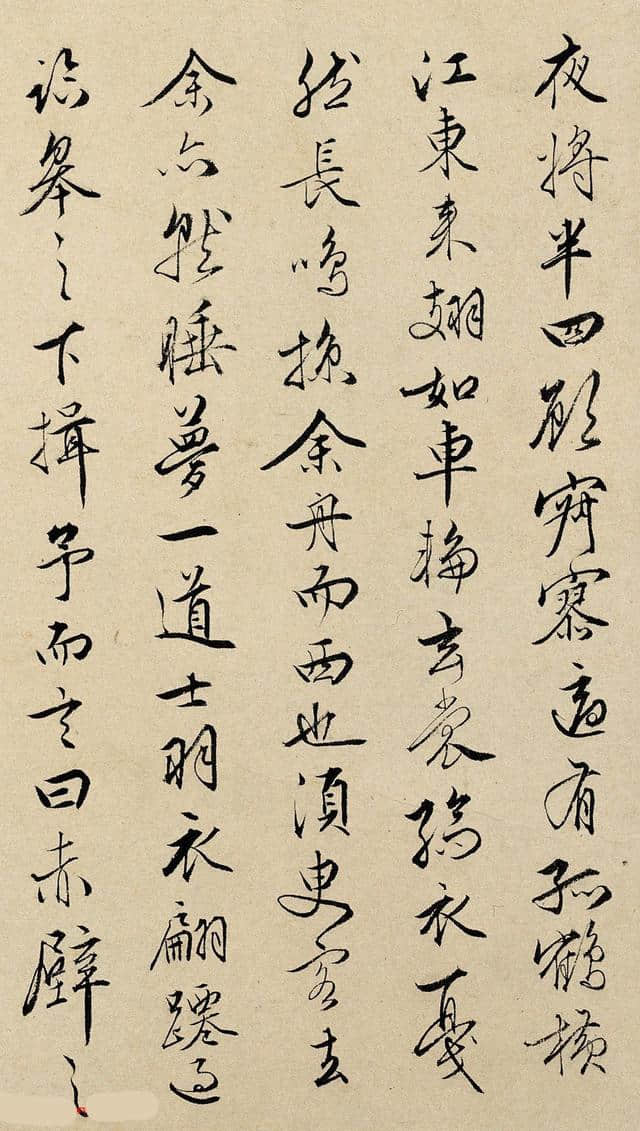 夜將半四顧寂寥適有孤鶴横
江東来翅如車輪玄裳縞衣戛
然長鳴掠余舟而西也須臾客去
余亦就睡夢一道士羽衣翩躚過
臨皋之下揖予而言曰赤壁之